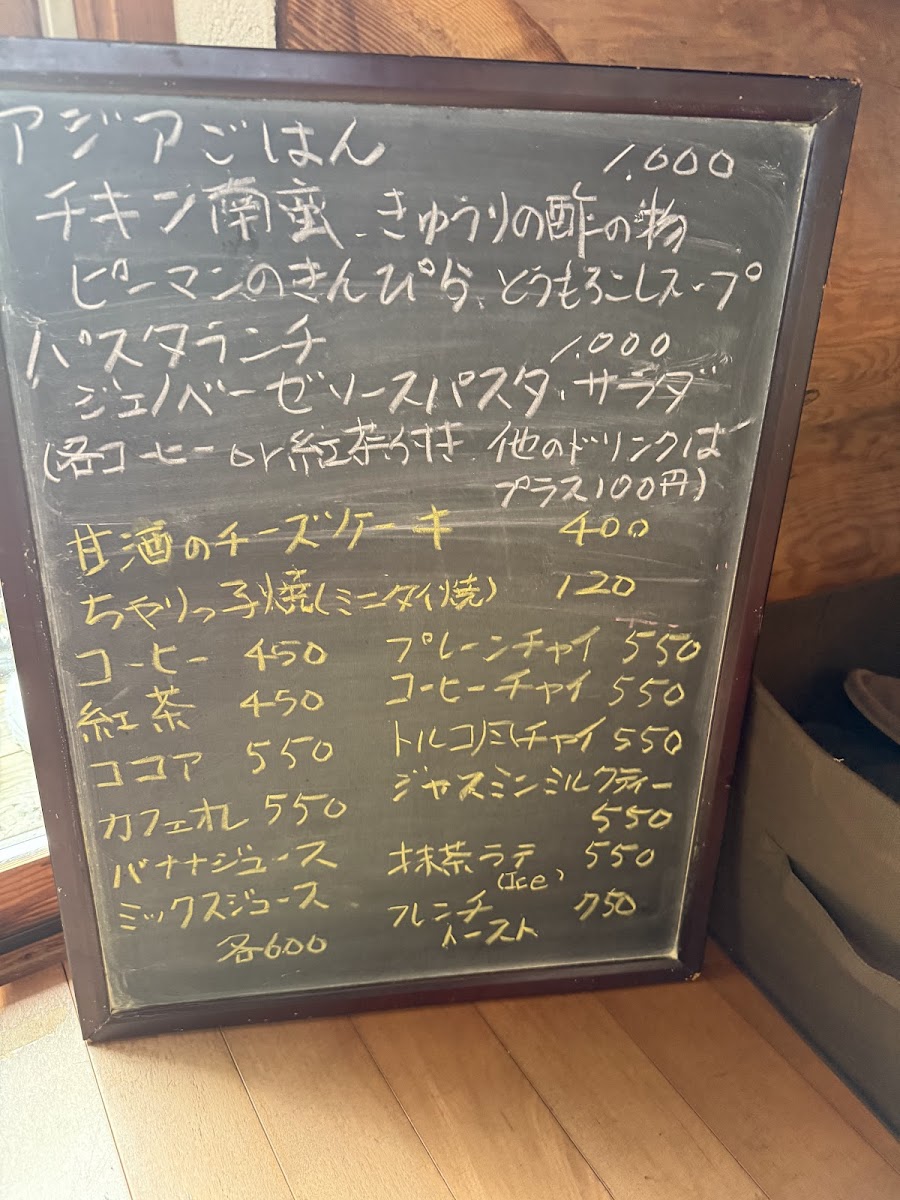 アジアごはん 1.000
チキン南蛮、きゅうりの酢の物
ピーマンのきんぴら、とうもろこしスープ
パスタランチ 1.000
ジェノベーゼソースパスタ、サラダ
(各コーヒーor紅茶付き 他のドリンクは
プラス100円)
甘酒のチーズケーキ 400
ちゃりっ子焼(ミニタイ焼) 120
コーヒー 450
紅茶 450
ココア 550
カフェオレ 550
バナナジュース
ミックスジュース
各600
プレーンチャイ 550
コーヒーチャイ 550
トルコ風チャイ 550
ジャスミンミルクティー
550
抹茶ラテ 550
(Ice)
フレンチ 750
トースト